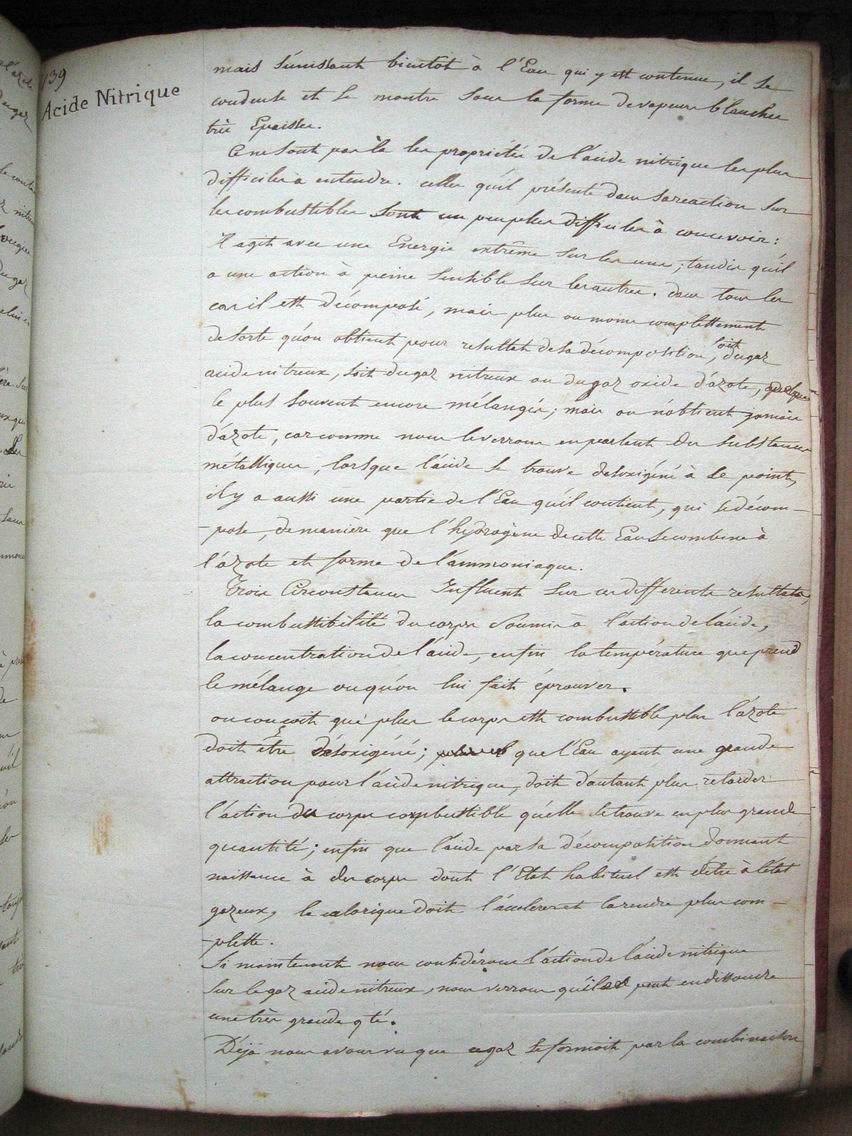 139
Acide Nitrique
mais s'unissant bientot à l'Eau qui y est contenue, il se
condense et se montre sous la forme de vapeurs blanches
très Epaisses.
Ce ne sont pas là les propriétés de l'acide nitrique les plus
difficiles a entendre. celles qu'il présente dans sa reaction sur
les combustibles sont un peu plus difficiles à concevoir:
Il agit avec une Energie extrême sur les uns; tandis qu'il
a une action à peine sensible sur les autres. dans tous les
cas il est décomposé, mais plus ou moins complettement
de sorte qu'on obtient pour resultat de sa décomposition, soit du gaz
acide nitreux, soit du gaz nitreux ou du gaz oxide d'azote,
le plus souvent encore mélangés; mais on n'obtient jamais
d'azote, car comme nous le verrons en parlant des substances
métalliques, lorsque l'acide se trouve désoxigéné à ce point,
il y a aussi une partie de l'Eau qu'il contient, qui se décom-
-pose, de manière que l'hydrogène de cette Eau se combine à
l'azote et forme de l'ammoniaque.
Trois Circonstances Influent sur ces differents resultats,
la combustibilité du corps soumis à l'action de l'acide,
la concentration de l'acide, enfin la température que prend
le mélange ou qu'on lui fait éprouver.
on conçoit que plus le corps est combustible plus l'azote
doit être désoxigéné; que l'Eau ayant une grande
attraction pour l'acide nitrique, doit d'autant plus retarder
l'action du corps combustible qu'elle se trouve en plus grande
quantité; enfin que l'acide par sa décomposition donnant
naissance à des corps dont l'Etat habituel est d'être à l'état
gazeux, le calorique doit l'accélérer et la rendre plus com-
-plette.
Si maintenant nous considérons l'action de l'acide nitrique
sur le gaz acide nitreux, nous verrons qu'il peut en dissoudre
une très grande qté.
Déjà nous avons vu que ce gaz se formoit par la combinaison